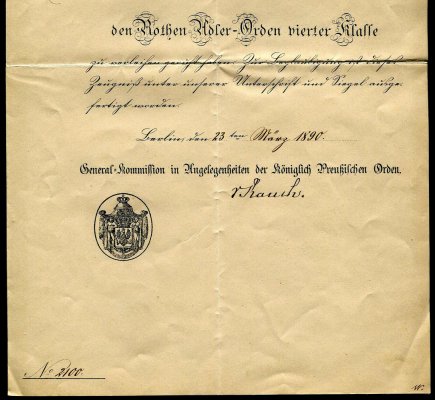 den Rothen Adler-Orden vierter Klasse
zu verleihen geruht haben. Zur Beglaubigung ist dieses
Zeugniß unter unserer Unterschrift und Siegel ausge-
fertigt worden.
Berlin, den 23ten März 1890.
General-Kommission in Angelegenheiten der Königlich Preußischen Orden.
vRauch.
No 2100.